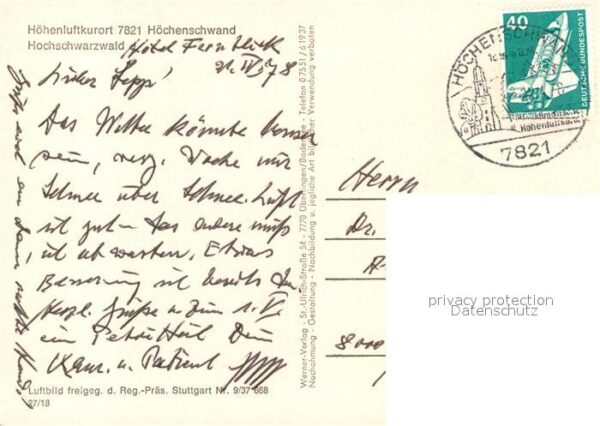 Höhenluftkurort 7821 Höchenschwand
Hochschwarzwald Hotel Fernblick
21. IV. 78
Lieber Sepp!
Das Wetter könnte besser
sein, Woche nur
Schnee über Schnee. Luft
ist gut – das andere muß
ist abwarten. Etwas
Besserung ist bereits da.
Herzl. Grüße u. zum 1. V.
ein Petri Heil Dein
Kam. u. Patient
Luftbild freigeg. d. Reg.-Präs. Stuttgart Nr. 9/37 668
27/18
Werner-Verlag - St.-Ulrich-Straße 54 - 7770 Überlingen/Bodensee - Telefon 07551/61937
Nachahmung - Gestaltung - Nachbildung u. jegliche Art bildlicher Verwendung verboten
40
DEUTSCHE BUNDESPOST
HÖCHENSCHWAND
u. Höhenluftkurort
7821
Herrn
Dr.
8000
privacy protection
Datenschutz